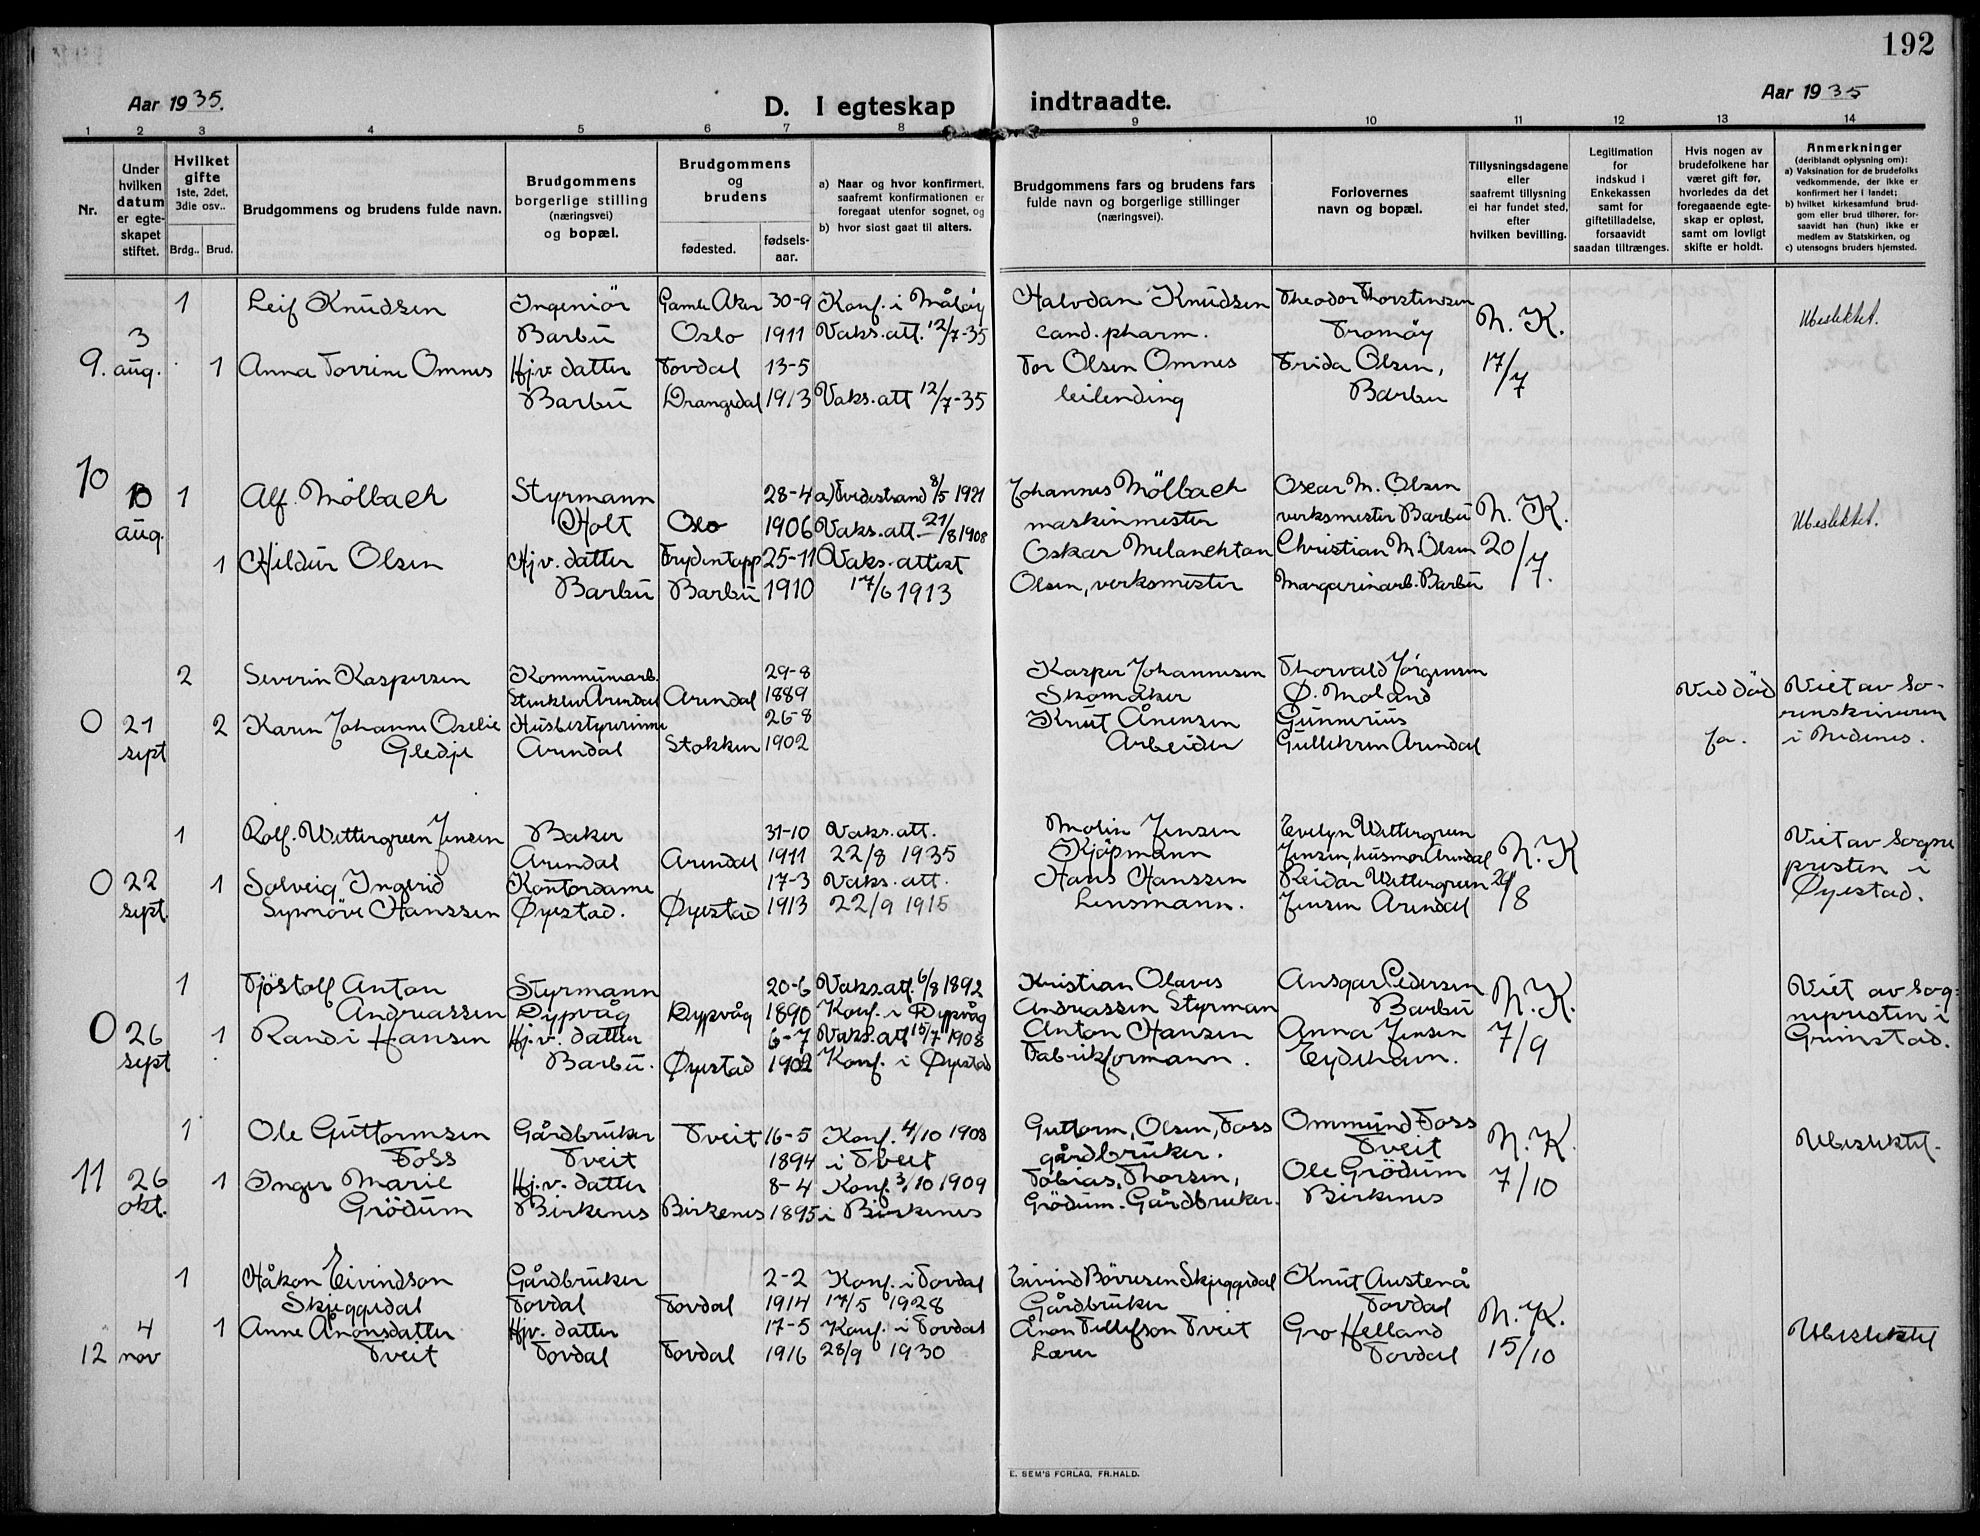 192
Aar 1935.
D. I egteskap indtraadte.
Aar 1935
1 2 3 4 5 6 7 8 9 10 11 12 13 14
Nr.
Under hvilken datum er egteskapet stiftet.
Hvilket gifte 1ste, 2det, 3die osv..
Brdg.. Brud.
Brudgommens og brudens fulde navn.
Brudgommens borgerlige stilling (næringsvei) og bopæl.
Brudgommens og brudens
fødested. fødselsaar.
a) Naar og hvor konfirmert, saafremt konfirmationen er foregaat utenfor sognet, og
b) hvor sidst gaat til alters.
Brudgommens fars og brudens fars fulde navn og borgerlige stillinger (næringsvei).
Forlovernes navn og bopæl.
Tillysningsdagene eller saafremt tillysning ei har fundet sted, efter hvilken bevilling.
Legitimation for indskud i Enkekassen samt for giftetilladelse, forsaavidt saadan tiltrænges.
Hvis nogen av brudefolkene har været gift før, hvorledes da det foregaaende egteskap er opløst, samt om lovligt skifte er holdt.
Anmerkninger
(deriblandt oplysning om):
a) Vaksination for de brudefolks vedkommende, der ikke er konfirmert her i landet;
b) hvilket kirkesamfund brudgom eller brud tilhører, forsaavidt han (hun) ikke er medlem av Statskirken, og
c) utensogns bruders hjemsted.
1 Leif Knudsen Ingeniör Gamle Aker 30-9 Konf. i Måløy Halvdan Knudsen Theodor Thorstensen N. K. Ubeslektet.
3 Barbu Oslo 1911 Vaks. att. 12/7-35 cand. pharm. Tromøy
9. aug. 1 Anna Torrine Omnes Hj.v. datter Tovdal 13-5 Tor Olsen Omnes Frida Olsen, 17/7
Barbu Drangedal 1913 Vaks. att 12/7-35 leilending Barbu
10 10 1 Alf. Mölbach Styrmann 28-4 a) Tvedestrand 8/5 1921 Johannes Mölbach Oscar M. Olsen N. K. Ubeslektet.
aug. Holt Oslo 1906 Vaks. att. 21/8 1908 maskinmester verksmester Barbu
1 Hildur Olsen Hj.v. datter Frydentopp 25-11 Vaks. attest Oskar Melanchtan Christian M. Olsen 20/7.
Barbu Barbu 1910 17/6 1913 Olsen, verksmester Margarinarb. Barbu
2 Severin Kaspersen Kommunearb. 29-8 Kasper Johannesen Thorvald Jörgensen
Stenklev Arendal Arendal 1889 Skomaker Ö. Moland Ved död Viet av so-
0 21 2 Karen Johanne Oselie Husbestyrerinne 26-8 Knut Ånensen Gunnerius renskriveren
sept Gledje Arendal Stokken 1902 Arbeider Gulleksen Arendal Ja. i Nedenes.
1 Rolf. Wettergreen Jensen Baker 31-10 Vaks. att. Molin Jensen Evelyn Wettergreen N. K Viet av sogne
Arendal Arendal 1911 22/8 1935 Kjöpmann Jensen, husmor Arendal presten i
0 22 1 Solveig Ingerid Kontordame 17-3 Vaks. att. Hans Hanssen Reidar Wettergreen /8 Øyestad.
sept. Synnöve Hanssen Øyestad. Øyestad 1913 22/9 1915 Lensmann. Jensen Arendal
1 Tjöstolf Anton Styrmann 20-6 Vaks. att. 6/8 1892 Kristian Olaves Ansgar Pedersen N. K. Viet av sog-
Andreassen Dypvåg Dypvåg 1890 Konf. i Dypvåg Andreassen Styrman Barbu nepresten i
0 26 1 Randi Hansen Hj.v. datter 6-7 Vaks. att 15/7 1908 Anton Hansen Anna Jensen 7/9 Grimstad.
sept Barbu. Øyestad 1902 Konf. i Øyestad Fabrikformann. Eydehavn.
1 Ole Guttormsen Gårdbruker Tveit 16-5 Konf. 4/10 1908 Guttorm, Olsen, Foss Ommund Foss N. K. Ubeslektet.
Foss Tveit 1894 i Tveit gårdbruker. Tveit
11 26 1 Inger Marie Hj.v. datter 8-4 Konf. 3/10 1909 Tobias, Thorsen, Ole Grödum 7/10
okt. Grödum Birkenes Birkenes 1895 i Birkenes Grödum. Gårdbruker. Birkenes
1 Håkon Eivindson Gårdbruker 2-2 Konf. i Tovdal Eivind Börresen Skjeggedal Knut Austenå
Skjeggedal Tovdal Tovdal 1914 17/5 1928 Gårdbruker Tovdal N. K.
4 1 Anne Ånonsdatter Hjv. datter 17-5 Konf. i Tovdal Ånon Tellefson Tveit Gro Helland Ubeslektet
12 nov Tveit Tovdal Tovdal 1916 28/9 1930 Lærer Tovdal 15/10
E. SEM'S FORLAG, FR.HALD.